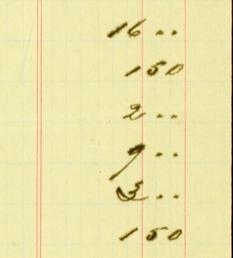 16 ..
1 50
2 ..
9 ..
3 ..
1 50